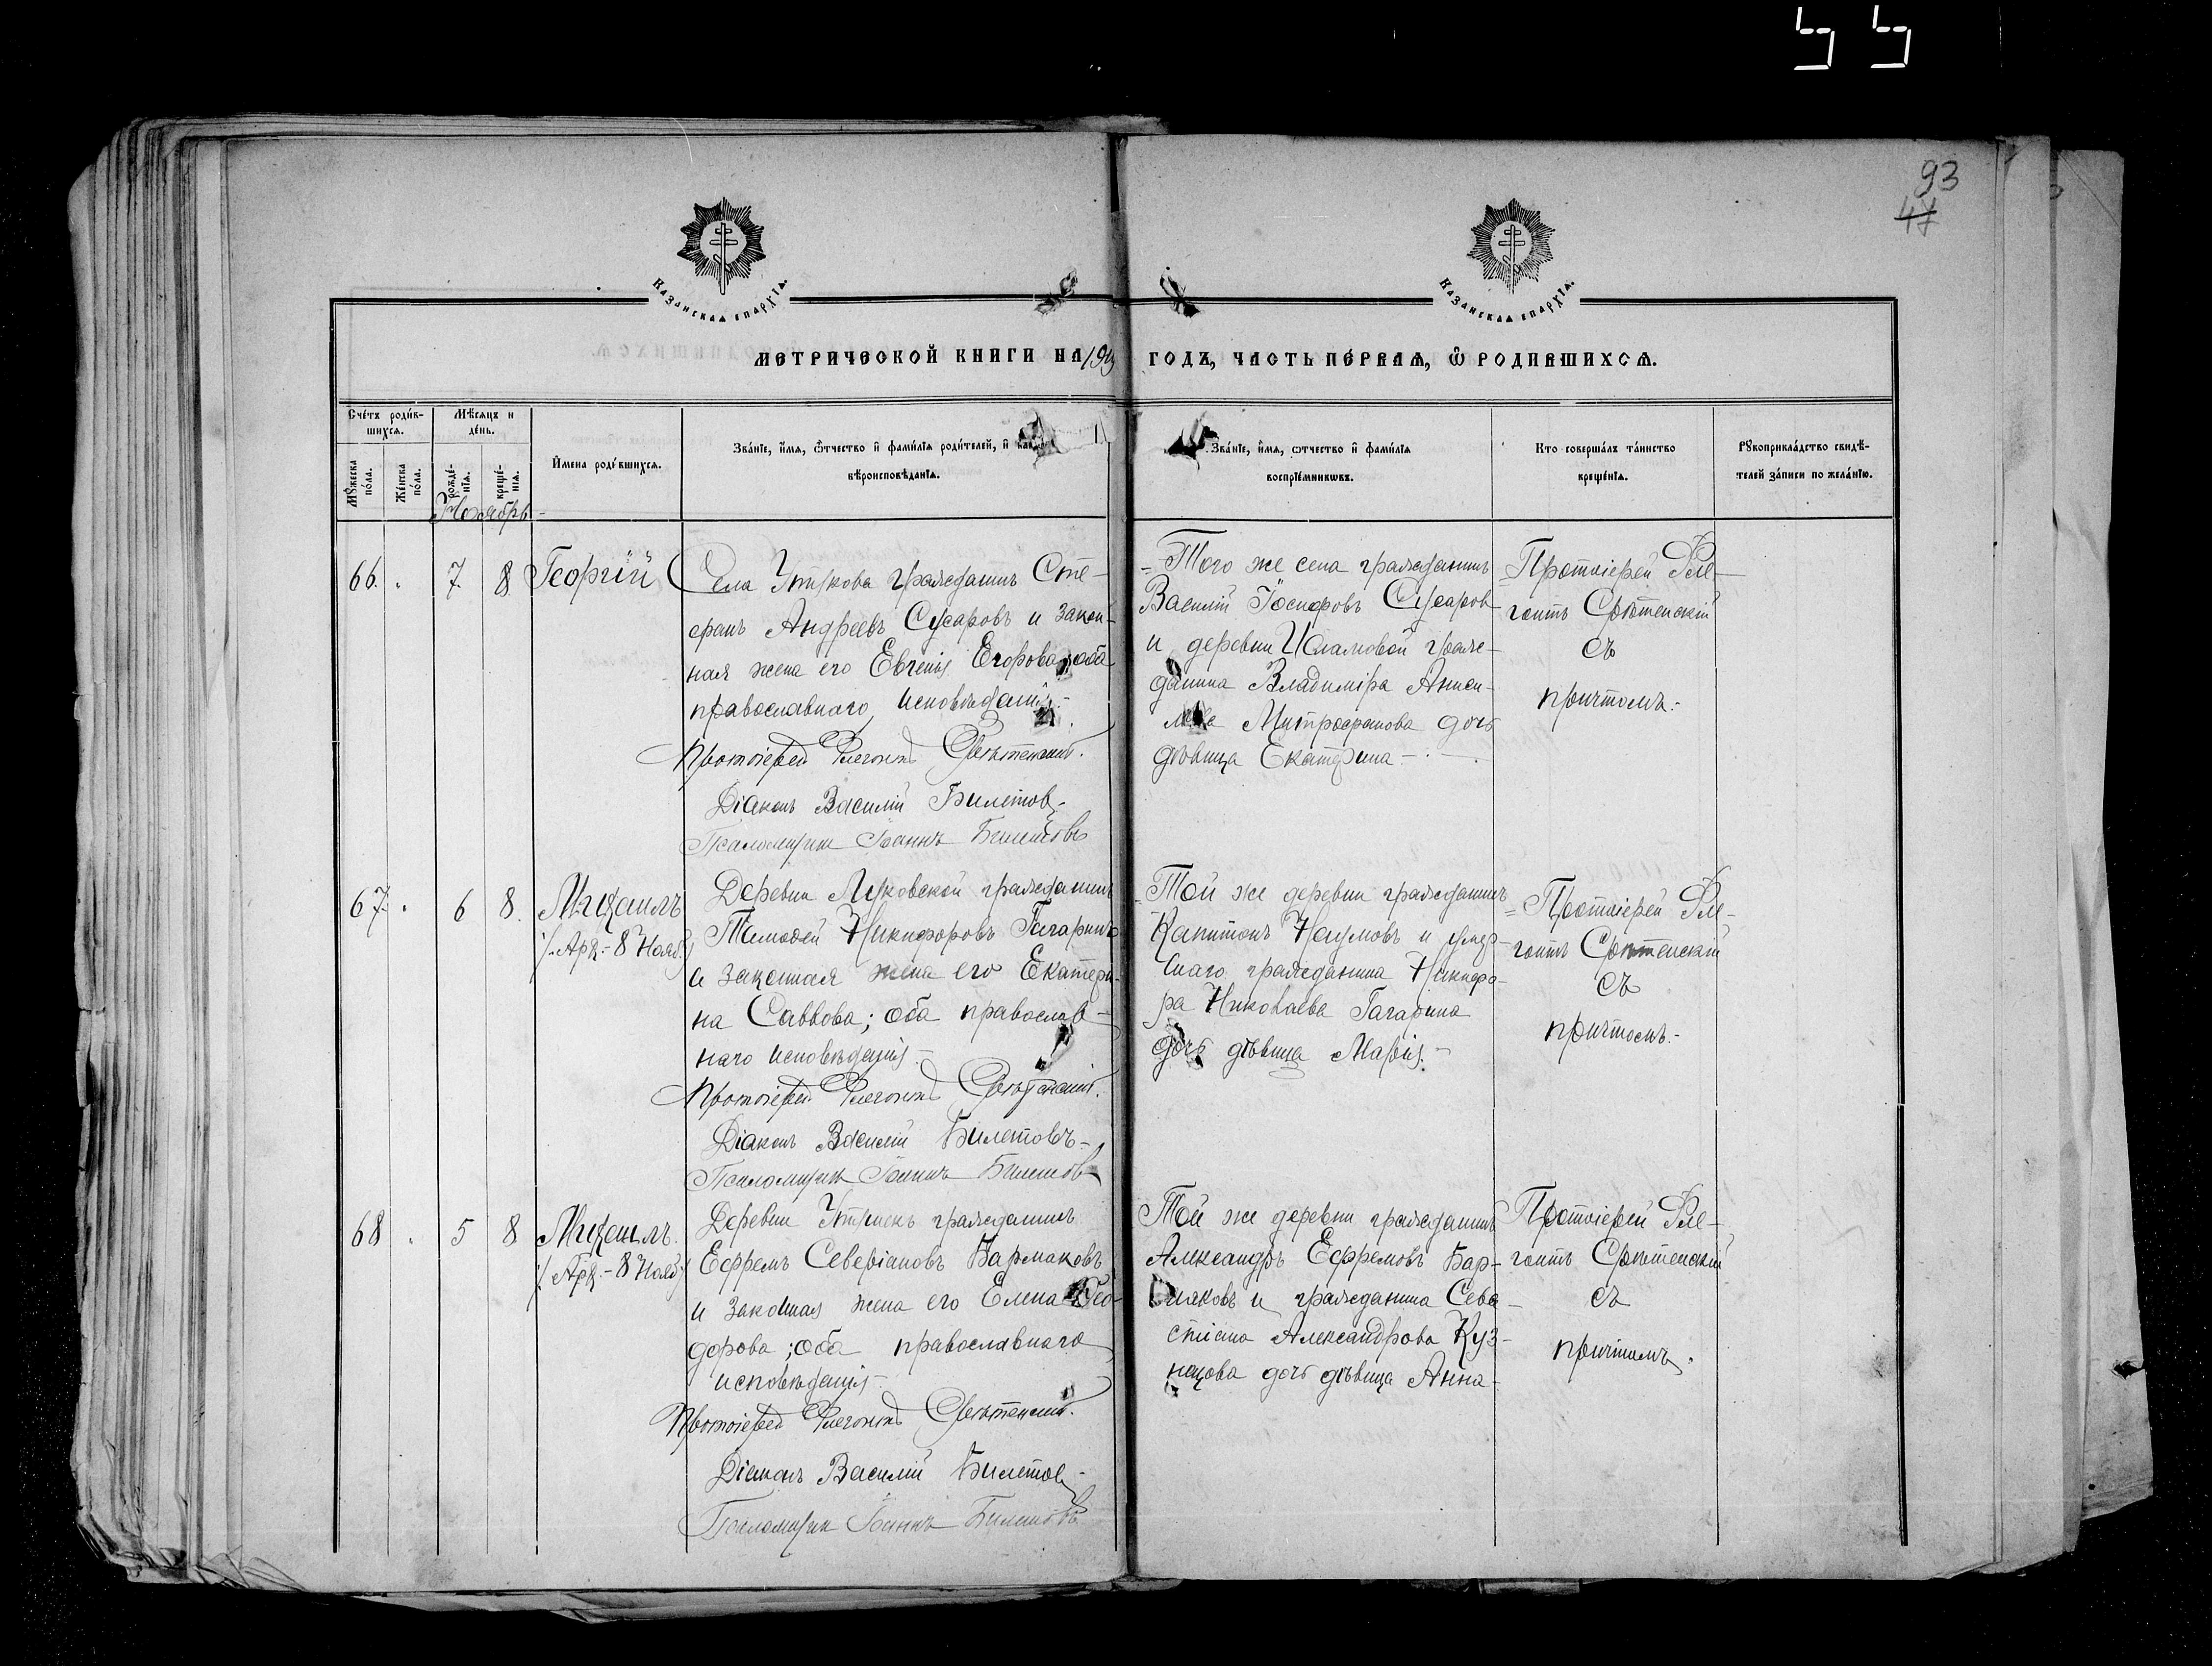 93
47
Казанская епархія.
Казанская епархія.
МЕТРИЧЕСКОЙ КНИГИ НА 19 ГОДЪ, ЧАСТЬ ПЕ́РВАЯ, Ѿ РОДИВШИХСѦ.
Сче́тъ роди́в-
шихся.
Мѣ́сяцъ и
де́нь.
Мꙋ́жеска
по́ла.
Же́нска
по́ла.
рожде́-
нїя.
креще́-
нїя.
И҆мена роди́вшихся.
Зва́нїе, и҆́мя, ѻ҆́тчество и҆ фами́лїя роди́телей, и҆ как
вѣроисповѣ́данїя.
Зва́нїе, и҆́мя, ѻтчество и҆ фами́лїя
воспрїе́мниковъ.
Кто соверша́лъ та́инство
креще́нїя.
Рꙋкоприкла́дство свидѣ́-
телей за́писи по жела́нїю.
Ноябрь
66. 7 8 Георгій
Села Утякова гражданинъ Сте-
фанъ Андреевъ Сусаровъ и закон-
ная жена его Евгенія Егорова; оба
православнаго исповѣданія.
Протоіерей Флегонтъ Срѣтенскій.
Діаконъ Василій Билетов
Псаломщик Іоаннъ Билетовъ
Того же села гражданинъ
Василій Іосифовъ Сусаров
и деревни Исламовой граж-
данина Владиміра
Митрофанова дочь
дѣвица Екатерина
Протоіерей Фле-
гонтъ Срѣтенскій
съ
причтомъ.
67. 6 8. Михаилъ
/Арх. - 8 Нояб./
Деревни гражданинъ
Тимофей Никифоровъ Гагаринъ
и законная жена его Екатери-
на Саввова; оба православ-
наго исповѣданія.
Протоіерей Флегонтъ Срѣтенскій.
Діаконъ Василій Билетовъ
Псаломщик Іоаннъ Билетов
Той же деревни гражданинъ
Капитонъ Наумовъ и умер-
шаго гражданина Никифо-
ра Николаева Гагарина
дочь дѣвица Марія.
Протоіерей Фле-
гонтъ Срѣтенскій
съ
причтомъ.
68 5 8 Михаилъ.
/Арх. - 8 Нояб/
Деревни гражданинъ
Ефремъ Северіановъ Бармаковъ
и законная жена его Елена Фео-
дорова; оба православнаго
исповѣданія
Протоіерей Флегонтъ Срѣтенскій.
Діаконъ Василій Билетов
Псаломщик Іоаннъ Билетовъ
Той же деревни гражданинъ
Александръ Ефремовъ Бар-
маковъ и гражданина Сева-
стіана Александрова Куз-
нецова дочь дѣвица Анна
Протоіерей Фле-
гонтъ Срѣтенскій
съ
причтомъ.